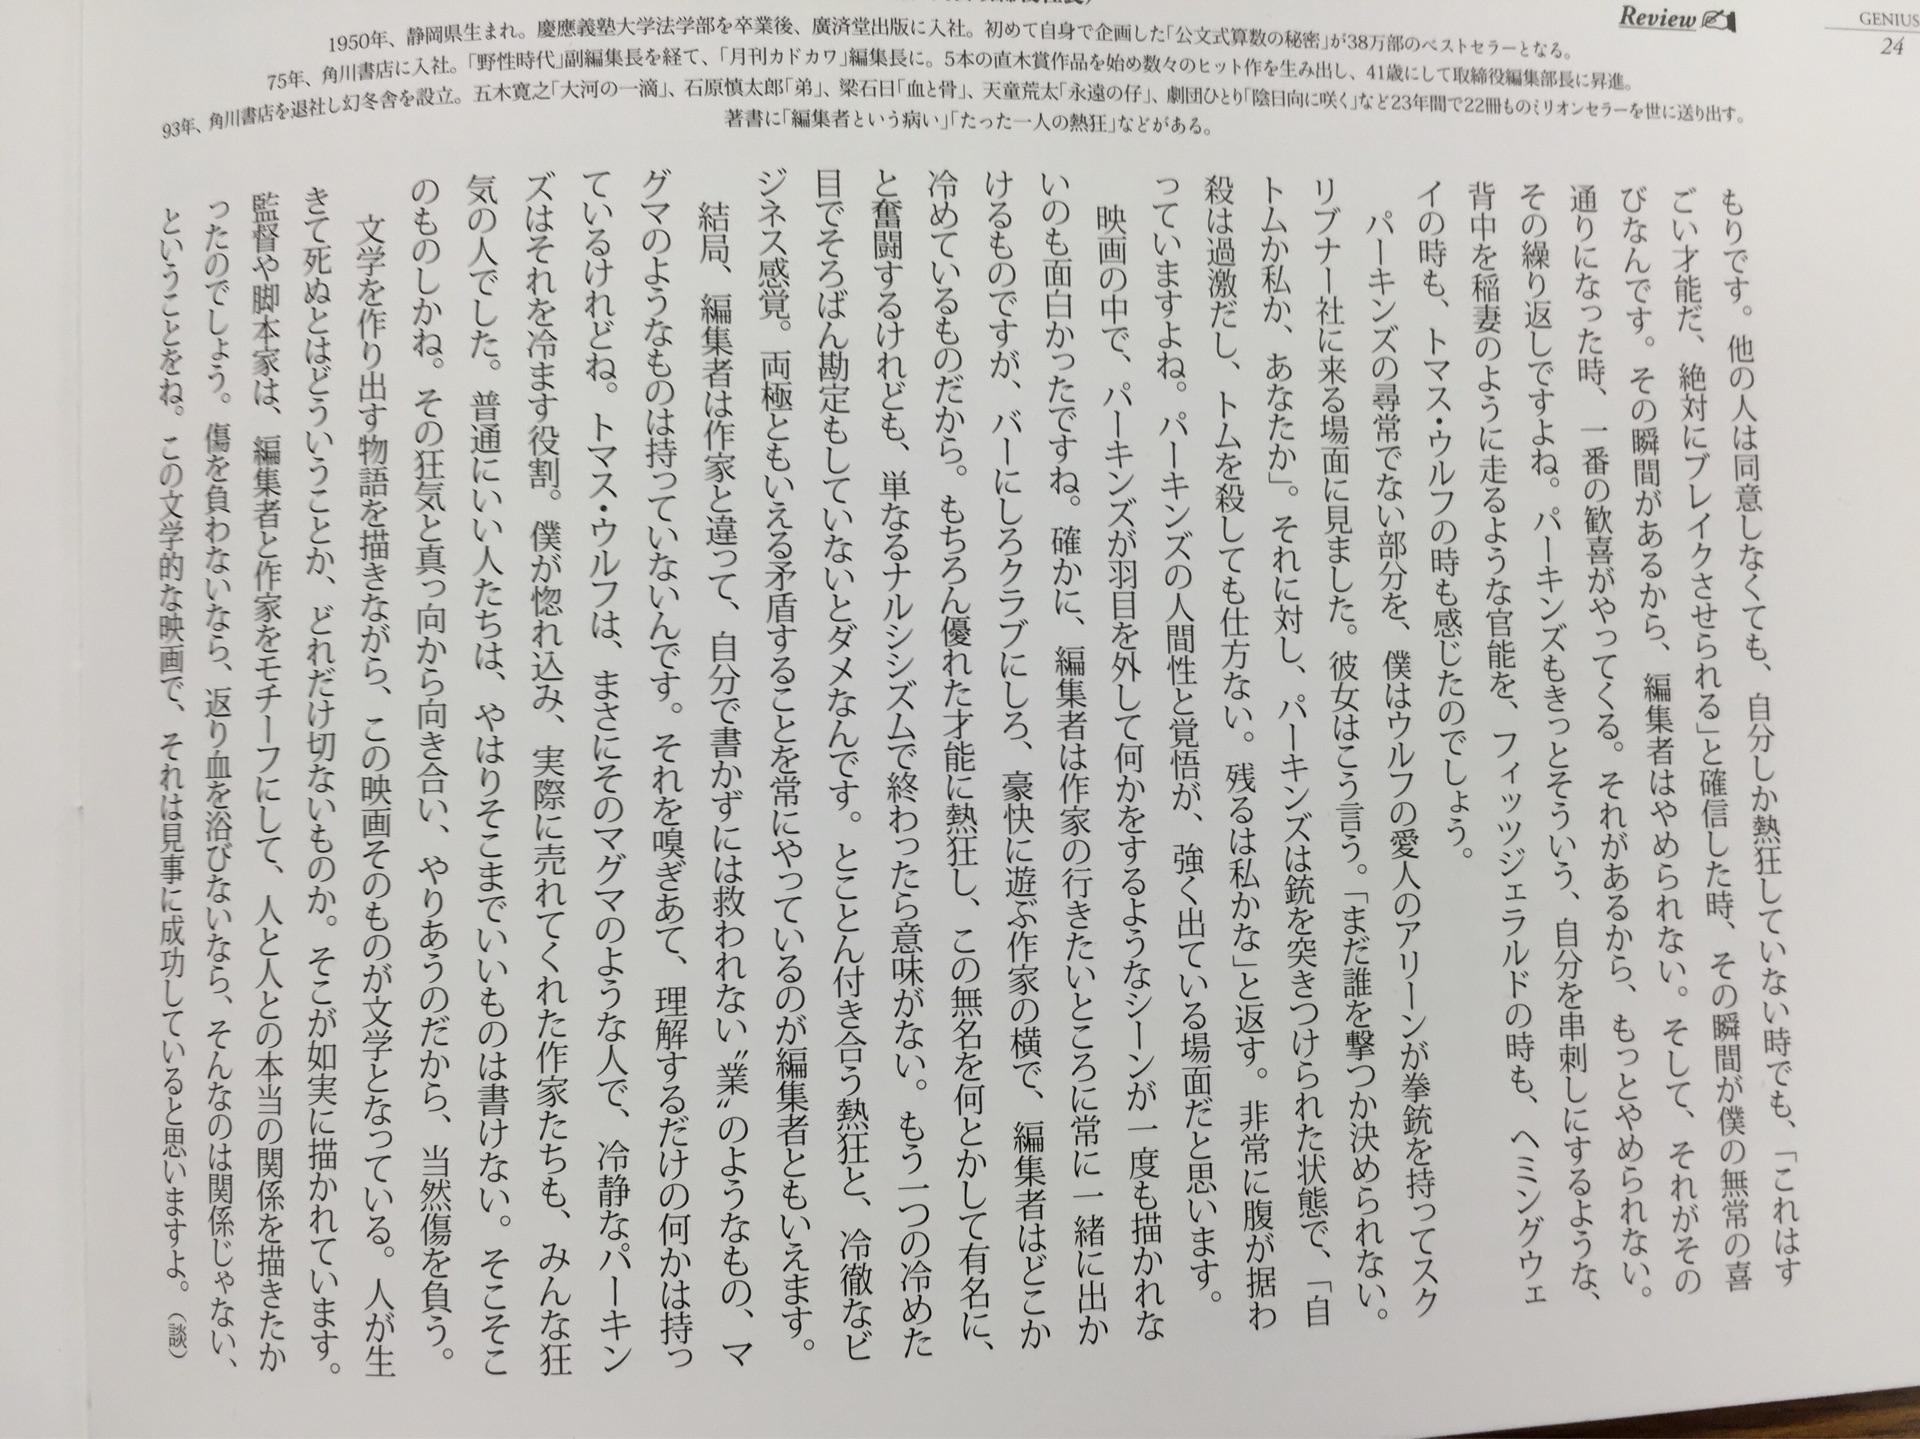 Review
GENIUS
24
1950年、静岡県生まれ。慶應義塾大学法学部を卒業後、廣済堂出版に入社。初めて自身で企画した「公文式算数の秘密」が38万部のベストセラーとなる。
75年、角川書店に入社。「野性時代」副編集長を経て、「月刊カドカワ」編集長に。5本の直木賞作品を始め数々のヒット作を生み出し、41歳にして取締役編集部長に昇進。
93年、角川書店を退社し幻冬舎を設立。五木寛之「大河の一滴」、石原慎太郎「弟」、梁石日「血と骨」、天童荒太「永遠の仔」、劇団ひとり「陰日向に咲く」など23年間で22冊ものミリオンセラーを世に送り出す。
著書に「編集者という病い」「たった一人の熱狂」などがある。
もりです。他の人は同意しなくても、自分しか熱狂していない時でも、「これはす
ごい才能だ、絶対にブレイクさせられる」と確信した時、その瞬間が僕の無常の喜
びなんです。その瞬間があるから、編集者はやめられない。そして、それがその
通りになった時、一番の歓喜がやってくる。それがあるから、もっとやめられない。
その繰り返しですよね。パーキンズもきっとそういう、自分を串刺しにするような、
背中を稲妻のように走るような官能を、フィッツジェラルドの時も、ヘミングウェ
イの時も、トマス・ウルフの時も感じたのでしょう。
パーキンズの尋常でない部分を、僕はウルフの愛人のアリーンが拳銃を持ってスク
リブナー社に来る場面に見ました。彼女はこう言う。「まだ誰を撃つか決められない。
トムか私か、あなたか」。それに対し、パーキンズは銃を突きつけられた状態で、「自
殺は過激だし、トムを殺しても仕方ない。残るは私かな」と返す。非常に腹が据わ
っていますよね。パーキンズの人間性と覚悟が、強く出ている場面だと思います。
映画の中で、パーキンズが羽目を外して何かをするようなシーンが一度も描かれな
いのも面白かったですね。確かに、編集者は作家の行きたいところに常に一緒に出か
けるものですが、バーにしろクラブにしろ、豪快に遊ぶ作家の横で、編集者はどこか
冷めているものだから。もちろん優れた才能に熱狂し、この無名を何とかして有名に、
と奮闘するけれども、単なるナルシシズムで終わったら意味がない。もう一つの冷めた
目でそろばん勘定もしていないとダメなんです。とことん付き合う熱狂と、冷徹なビ
ジネス感覚。両極ともいえる矛盾することを常にやっているのが編集者ともいえます。
結局、編集者は作家と違って、自分で書かずには救われない〝業〟のようなもの、マ
グマのようなものは持っていないんです。それを嗅ぎあて、理解するだけの何かは持っ
ているけれどね。トマス・ウルフは、まさにそのマグマのような人で、冷静なパーキン
ズはそれを冷ます役割。僕が惚れ込み、実際に売れてくれた作家たちも、みんな狂
気の人でした。普通にいい人たちは、やはりそこまでいいものは書けない。そこそこ
のものしかね。その狂気と真っ向から向き合い、やりあうのだから、当然傷を負う。
文学を作り出す物語を描きながら、この映画そのものが文学となっている。人が生
きて死ぬとはどういうことか、どれだけ切ないものか。そこが如実に描かれています。
監督や脚本家は、編集者と作家をモチーフにして、人と人との本当の関係を描きたか
ったのでしょう。傷を負わないなら、返り血を浴びないなら、そんなのは関係じゃない、
ということをね。この文学的な映画で、それは見事に成功していると思いますよ。（談）